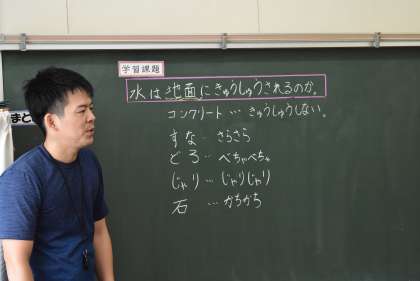 学習課題
水は地面にきゅうしゅうされるのか。
コンクリート…きゅうしゅうしない。
すな…さらさら
どろ…べちゃべちゃ
じゃり…じゃりじゃり
石…かちかち
まと